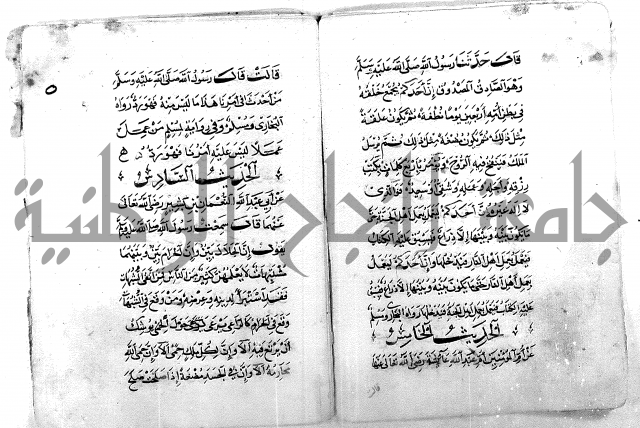 قال حدثنا رسول الله صلى الله عليه وسلم
وهو الصادق المصدوق إن أحدكم يجمع خلقه
في بطن أمه أربعين يوما نطفة ثم يكون علقة
مثل ذلك ثم يكون مضغة مثل ذلك ثم يرسل
الملك فينفخ فيه الروح ويؤمر بأربع كلمات بكتب
رزقه وأجله وعمله وشقي أو سعيد فوالذي
لا إله غيره إن أحدكم ليعمل بعمل أهل الجنة حتى
ما يكون بينه وبينها إلا ذراع فيسبق عليه الكتاب
فيعمل بعمل أهل النار فيدخلها وإن أحدكم ليعمل
بعمل أهل النار حتى ما يكون بينه وبينها إلا ذراع فيسبق
عليه الكتاب فيعمل بعمل أهل الجنة فيدخلها رواه البخاري ومسلم
الحديث الخامس
عن أم المؤمنين أم عبد الله عائشة رضي الله تعالى عنها
قالت قال رسول الله صلى الله عليه وسلم
من أحدث في أمرنا هذا ما ليس منه فهو رد رواه
البخاري ومسلم وفي رواية لمسلم من عمل
عملا ليس عليه أمرنا فهو رد
الحديث السادس
عن أبي عبد الله النعمان بن بشير رضي الله تعالى
عنهما قال سمعت رسول الله صلى الله عليه وسلم
يقول إن الحلال بين وإن الحرام بين وبينهما
مشتبهات لا يعلمهن كثير من الناس فمن اتقى الشبهات
فقد استبرأ لدينه وعرضه ومن وقع في الشبهات
وقع في الحرام كالراعي يرعى حول الحمى يوشك
أن يرتع فيه ألا وإن لكل ملك حمى ألا وإن حمى الله
محارمه ألا وإن في الجسد مضغة إذا صلحت صلح
٥
جامعة النجاح الوطنية